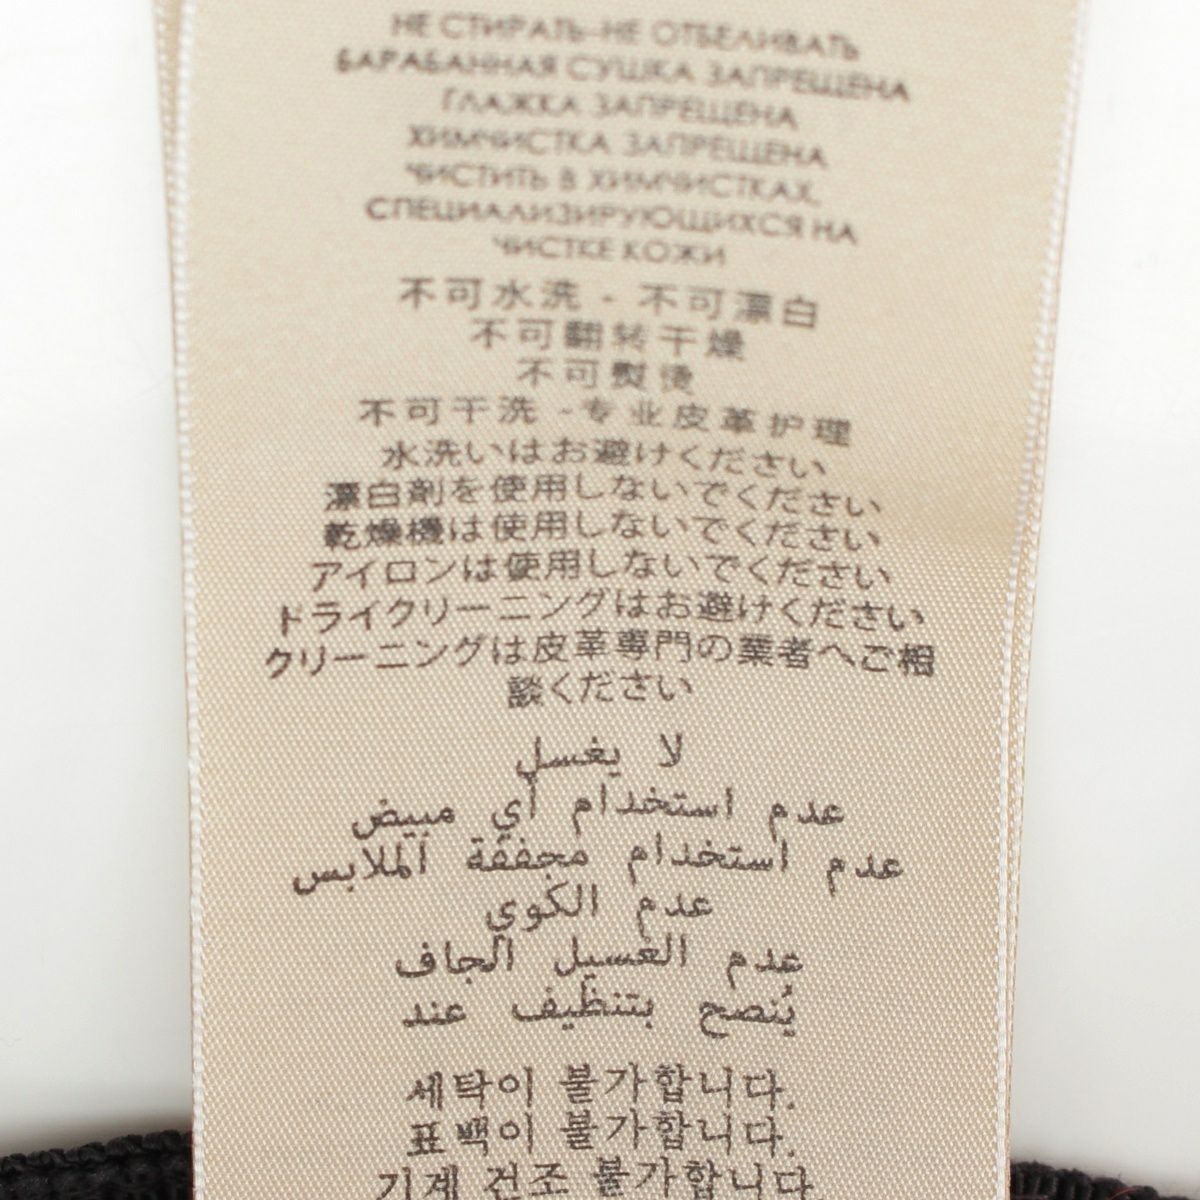 НЕ СТИРАТЬ-НЕ ОТБЕЛИВАТЬ
БАРАБАННАЯ СУШКА ЗАПРЕЩЕНА
ГЛАЖКА ЗАПРЕЩЕНА
ХИМЧИСТКА ЗАПРЕЩЕНА
ЧИСТИТЬ В ХИМЧИСТКАХ,
СПЕЦИАЛИЗИРУЮЩИХСЯ НА
ЧИСТКЕ КОЖИ
不可水洗 - 不可漂白
不可翻转干燥
不可熨烫
不可干洗 -专业皮革护理
水洗いはお避けください
漂白剤を使用しないでください
乾燥機は使用しないでください
アイロンは使用しないでください
ドライクリーニングはお避けください
クリーニングは皮革専門の業者へご相
談ください
لا يغسل
عدم استخدام أي مبيض
عدم استخدام مجففة الملابس
عدم الكوي
عدم الغسيل الجاف
يُنصح بتنظيف عند
세탁이 불가합니다.
표백이 불가합니다.
기계 건조 불가합니다.